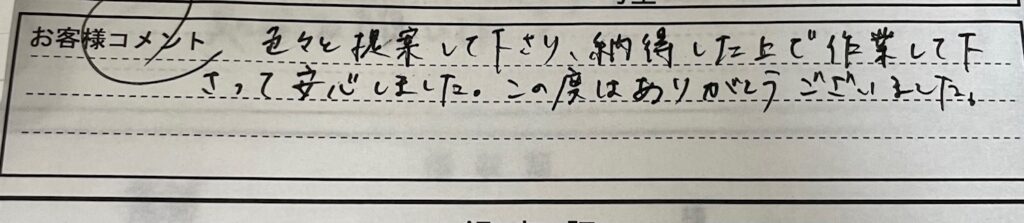 お客様コメント 色々と提案して下さり、納得した上で作業して下
さって安心しました。この度はありがとうございました。